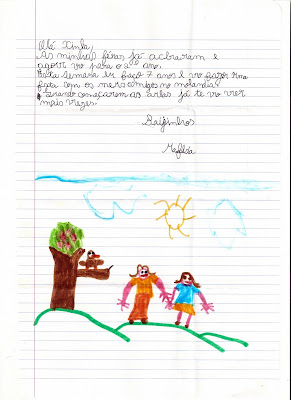 Olá
As minhas férias já acbaram e
agora vo para o 2º ano.
Esta semana faço 7 anos vo fazer uma
festa com os meus amigos no
Quando começarem as aulas já te vo ver
mais vezes.
Beijinhos
Mafalda